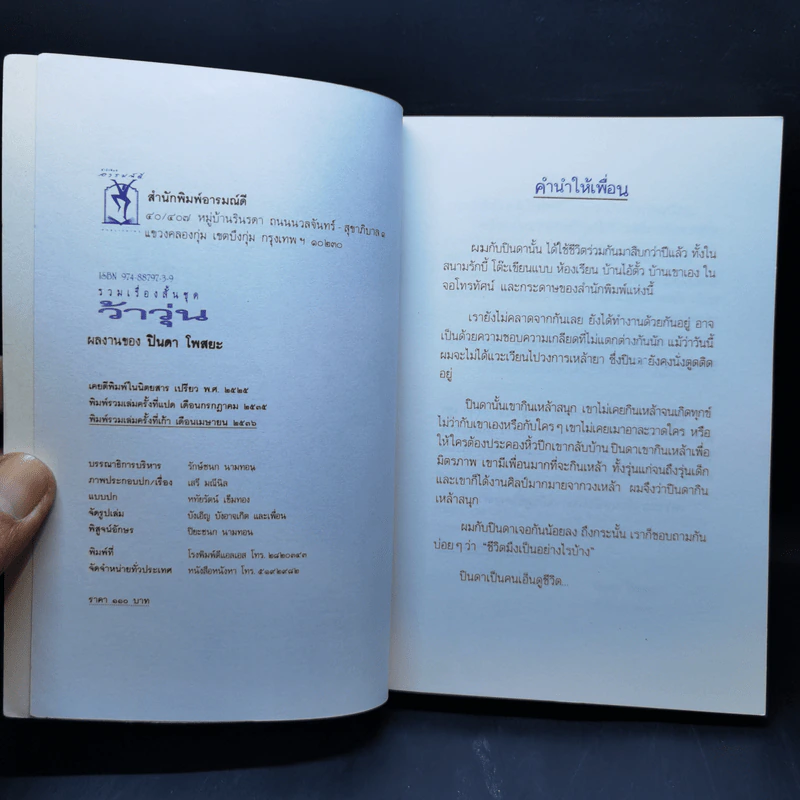 สำนักพิมพ์อารมณ์ดี
๔๐/๔๐๗ หมู่บ้านรินรดา ถนนนวลจันทร์ - สุขาภิบาล ๑
แขวงคลองกุ่ม เขตบึงกุ่ม กรุงเทพฯ ๑๐๒๓๐
ISBN 974-88797-3-9
รวมเรื่องสั้นชุด
ว้าวุ่น
ผลงานของ ปินดา โพสยะ
เคยตีพิมพ์ในนิตยสาร เปรียว พ.ศ. ๒๕๒๕
พิมพ์รวมเล่มครั้งที่แปด เดือนกรกฎาคม ๒๕๓๕
พิมพ์รวมเล่มครั้งที่เก้า เดือนเมษายน ๒๕๓๖
บรรณาธิการบริหาร รักษ์ชนก นามทอน
ภาพประกอบปก/เรื่อง เสรี มณีนิล
แบบปก หทัยรัตน์ เข็มทอง
จัดรูปเล่ม บังเอิญ บังอาจเกิด และเพื่อน
พิสูจน์อักษร ปิยะชนก นามทอน
พิมพ์ที่ โรงพิมพ์ดีแอลเอส โทร. ๒๘๒๐๓๔๓
จัดจำหน่ายทั่วประเทศ หนังสือหนังหา โทร. ๕๑๙๒๙๘๒
ราคา ๑๑๐ บาท
คำนำให้เพื่อน
ผมกับปินดานั้น ได้ใช้ชีวิตร่วมกันมาสิบกว่าปีแล้ว ทั้งใน
สนามรักบี้ โต๊ะเขียนแบบ ห้องเรียน บ้านไอ้ตั้ว บ้านเขาเอง ใน
จอโทรทัศน์ และกระดาษของสำนักพิมพ์แห่งนี้
เรายังไม่คลาดจากกันเลย ยังได้ทำงานด้วยกันอยู่ อาจ
เป็นด้วยความชอบความเกลียดที่ไม่แตกต่างกันนัก แม้ว่าวันนี้
ผมจะไม่ได้แวะเวียนไปวงการเหล้ายา ซึ่งปินดายังคงนั่งตูดติด
อยู่
ปินดานั้นเขากินเหล้าสนุก เขาไม่เคยกินเหล้าจนเกิดทุกข์
ไม่ว่ากับเขาเองหรือกับใครๆ เขาไม่เคยเมาอาละวาดใคร หรือ
ให้ใครต้องประคองหิ้วปีกเขากลับบ้าน ปินดาเขากินเหล้าเพื่อ
มิตรภาพ เขามีเพื่อนมากที่จะกินเหล้า ทั้งรุ่นแก่จนถึงรุ่นเด็ก
และเขาก็ได้งานศิลป์มากมายจากวงเหล้า ผมจึงว่าปินดากิน
เหล้าสนุก
ผมกับปินดาเจอกันน้อยลง ถึงกระนั้น เราก็ชอบถามกัน
บ่อยๆ ว่า “ชีวิตมึงเป็นอย่างไรบ้าง”
ปินดาเป็นคนเอ็นดูชีวิต...